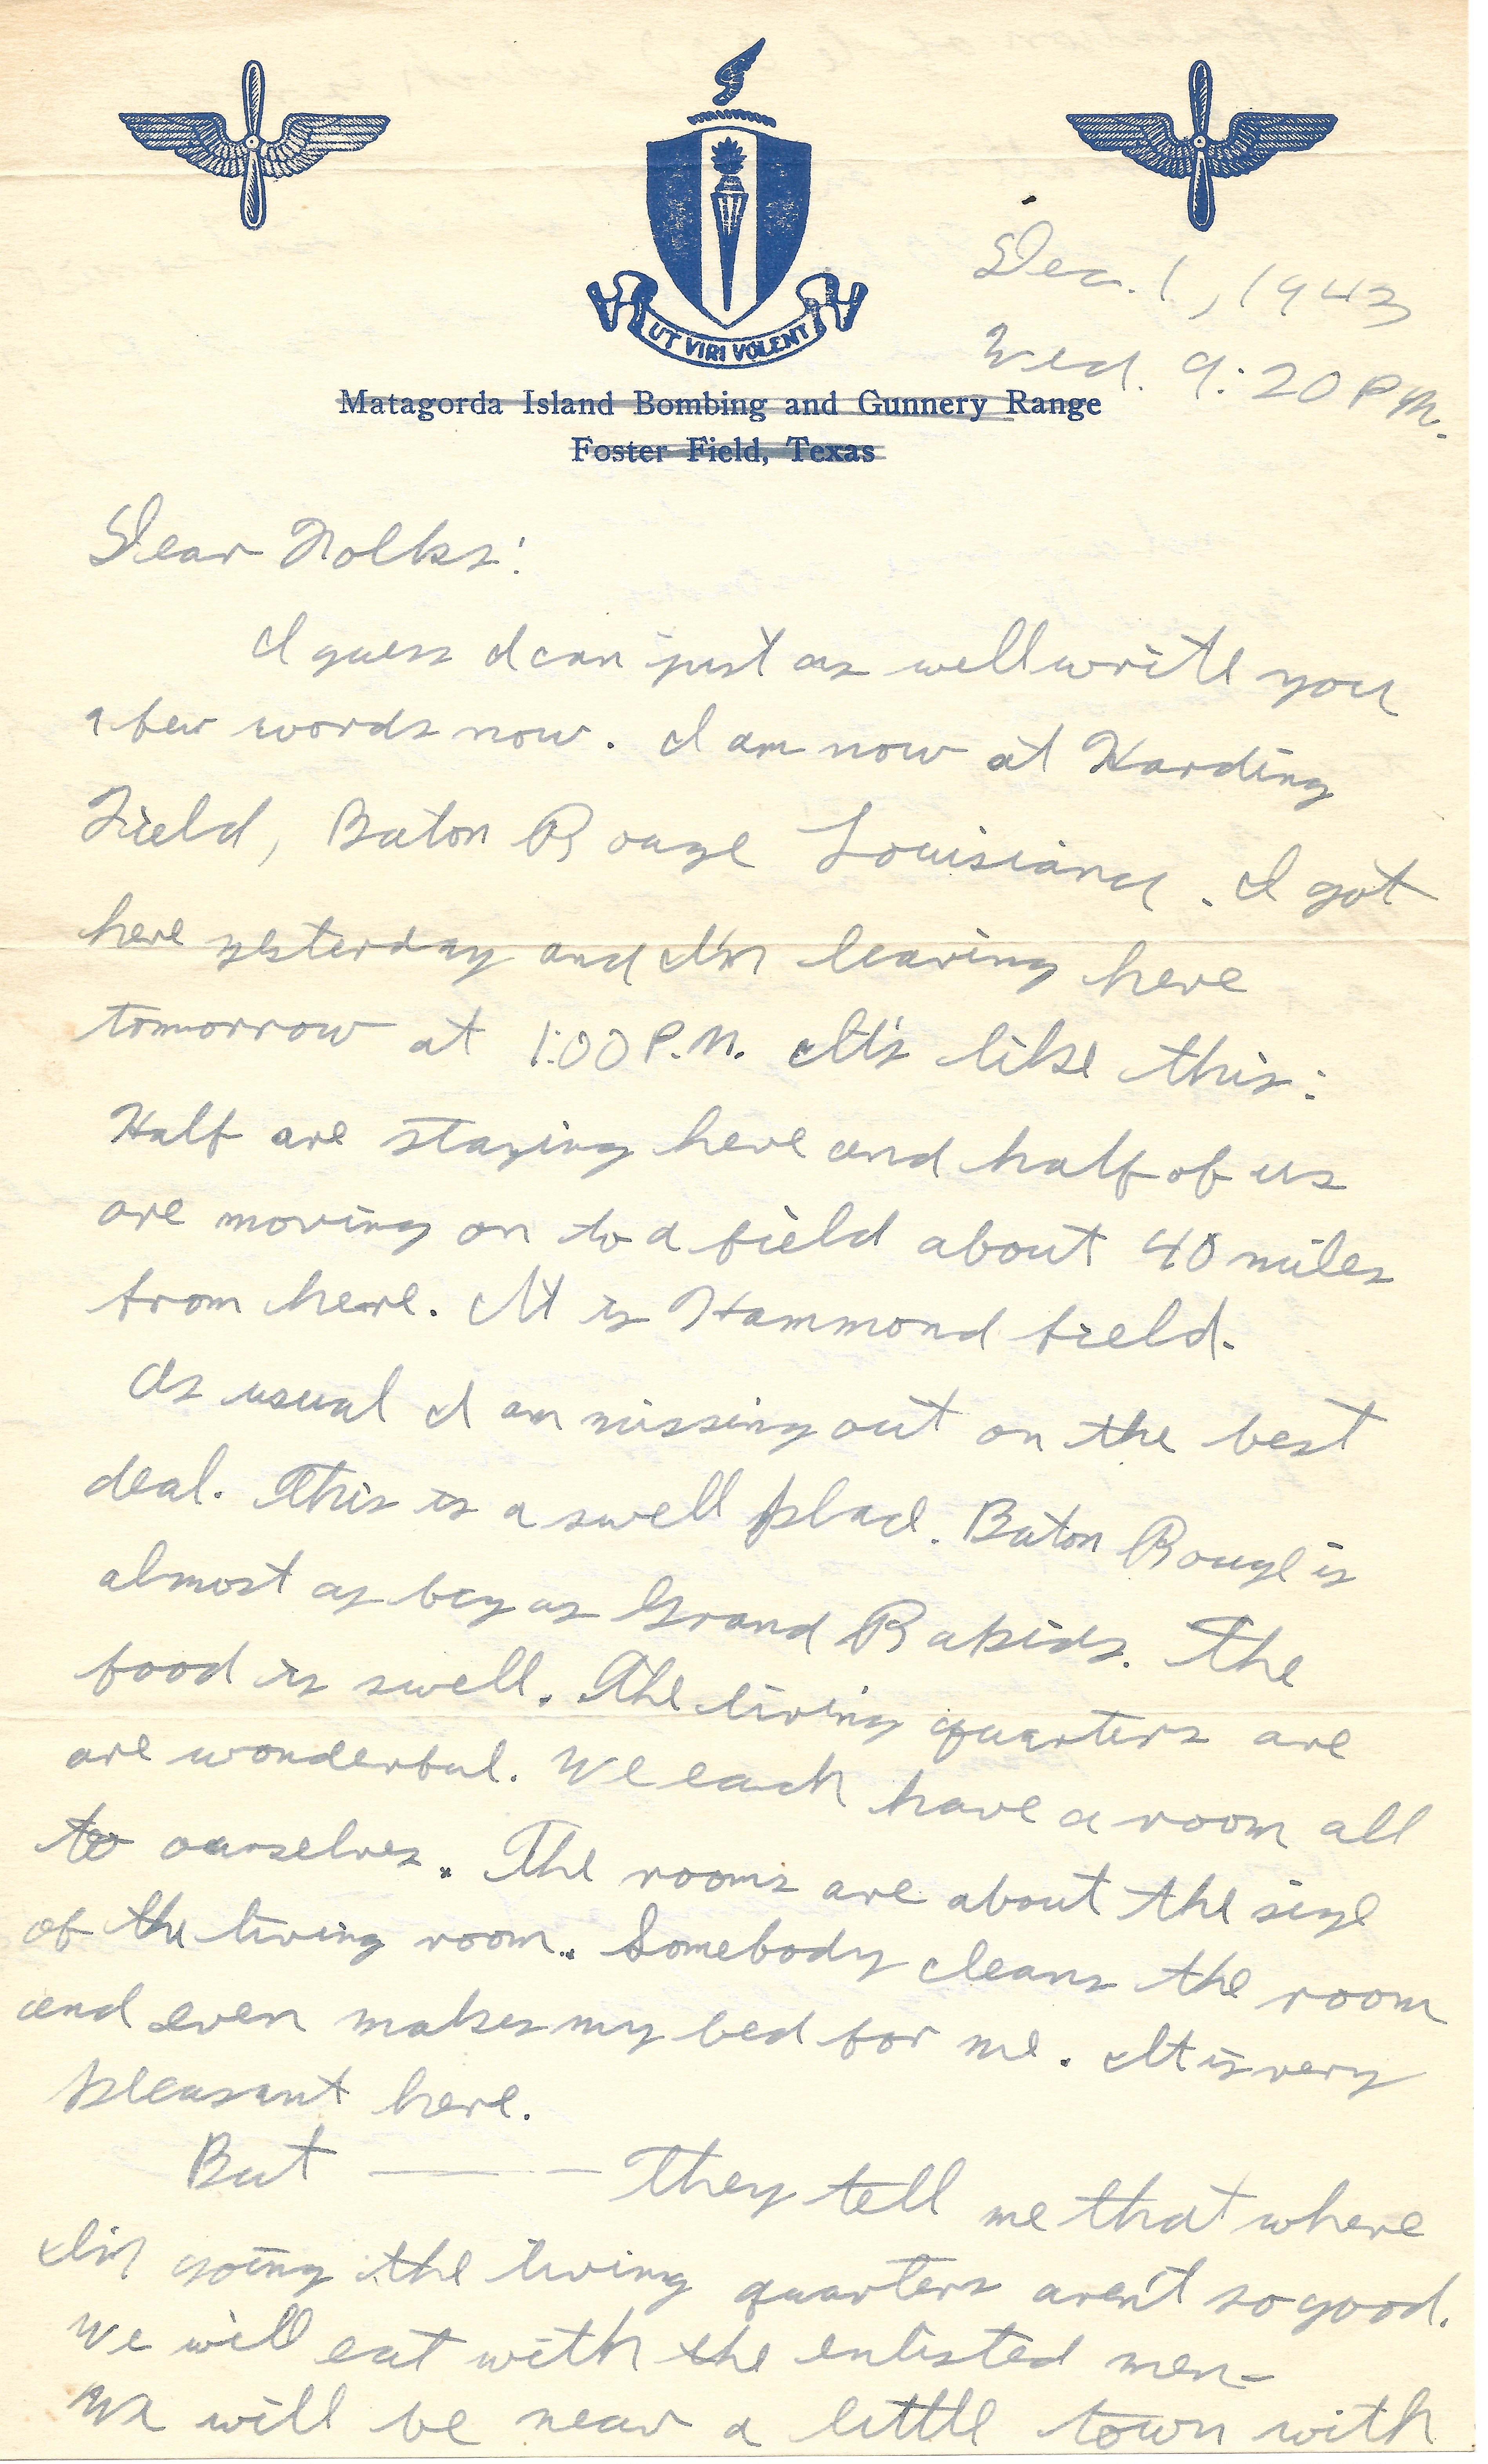 UT VIRI VOLENT
Dec. 1, 1943
Wed. 9:20 P.M.
Matagorda Island Bombing and Gunnery Range
Foster Field, Texas
Dear Folks:
I guess I can just as well write you
a few words now. I am now at Harding
Field, Baton Rouge Louisiana. I got
here yesterday and I'm leaving here
tomorrow at 1:00 P.M. It's like this:
Half are staying here and half of us
are moving on to a field about 40 miles
from here. It is Hammond field.
As usual I am missing out on the best
deal. This is a swell place. Baton Rouge is
almost as big as Grand Rapids. The
food is swell. The living quarters are
are wonderful. We each have a room all
to ourselves. The rooms are about the size
of the living room. Somebody cleans the room
and even makes my bed for me. It is very
pleasant here.
But — — They tell me that where
I'm going the living quarters aren't so good.
We will eat with the enlisted men-
We will be near a little town with